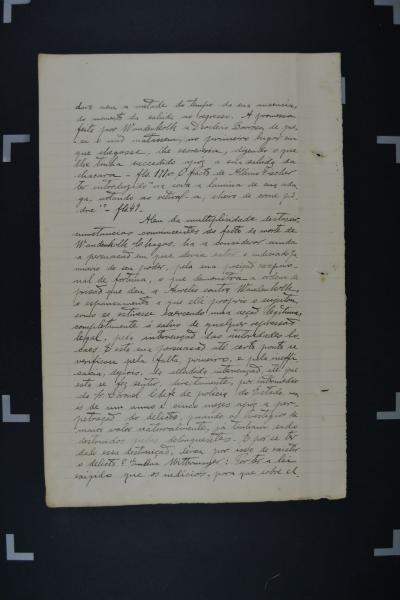 dará nem a metade do tempo da sua ausencia,
do momento da sahida ao regresso. A promessa
feita por Wandenkolk a Deoclecio Borroso, de que,
se o não matassem, no primeiro lugar em
que chegasse, lhe escreveria, dizendo o que
lhe tinha succedido após a sua sahida da
chacara - fls 118v. O facto de Albino Fischer
ter introduzido na cova a lamina de sua ada-
ga, notando ao retiral-a, cheiro de carne pô-
dre" - fls 49.
Alem da multiplicidade destas cir-
cumstancias convincentes do facto da morte de
Wandenkolk Chagas, ha a considerar ainda
a persuasão em que devia estar o
do seu poder, pela sua posição excepcio-
nal de fortuna, o que demonstra a ordem de
prisão que deu a Aurelio contra Wandenkolk,
o espancamento a que elle proprio o sugeitou,
como se estivesse exercendo uma acção legitima,
completamente a salvo de qualquer repressão
legal, pela intervenção das autoridades lo-
caes. E esta sua persuasão até certo ponto se
verificou pela falta, primeiro, e pela ineffi-
cacia, depois, da alludida intervenção, até que
esta se fez sentir, directamente, por intermedio
do Sr. Coronel Chefe de policia do Estado,
is de um anno e cinco mezes após a per-
petração do delicto, quando os vestigios de
maior valor naturalmente, já tinham sido
destruidos pelos delinquentes. E por se ter
dado essa destruição, deixa por isso de existir
o delicto? Emilia Mittermayer: Por ter a lei
exigido que os indicios, para que sobre el-